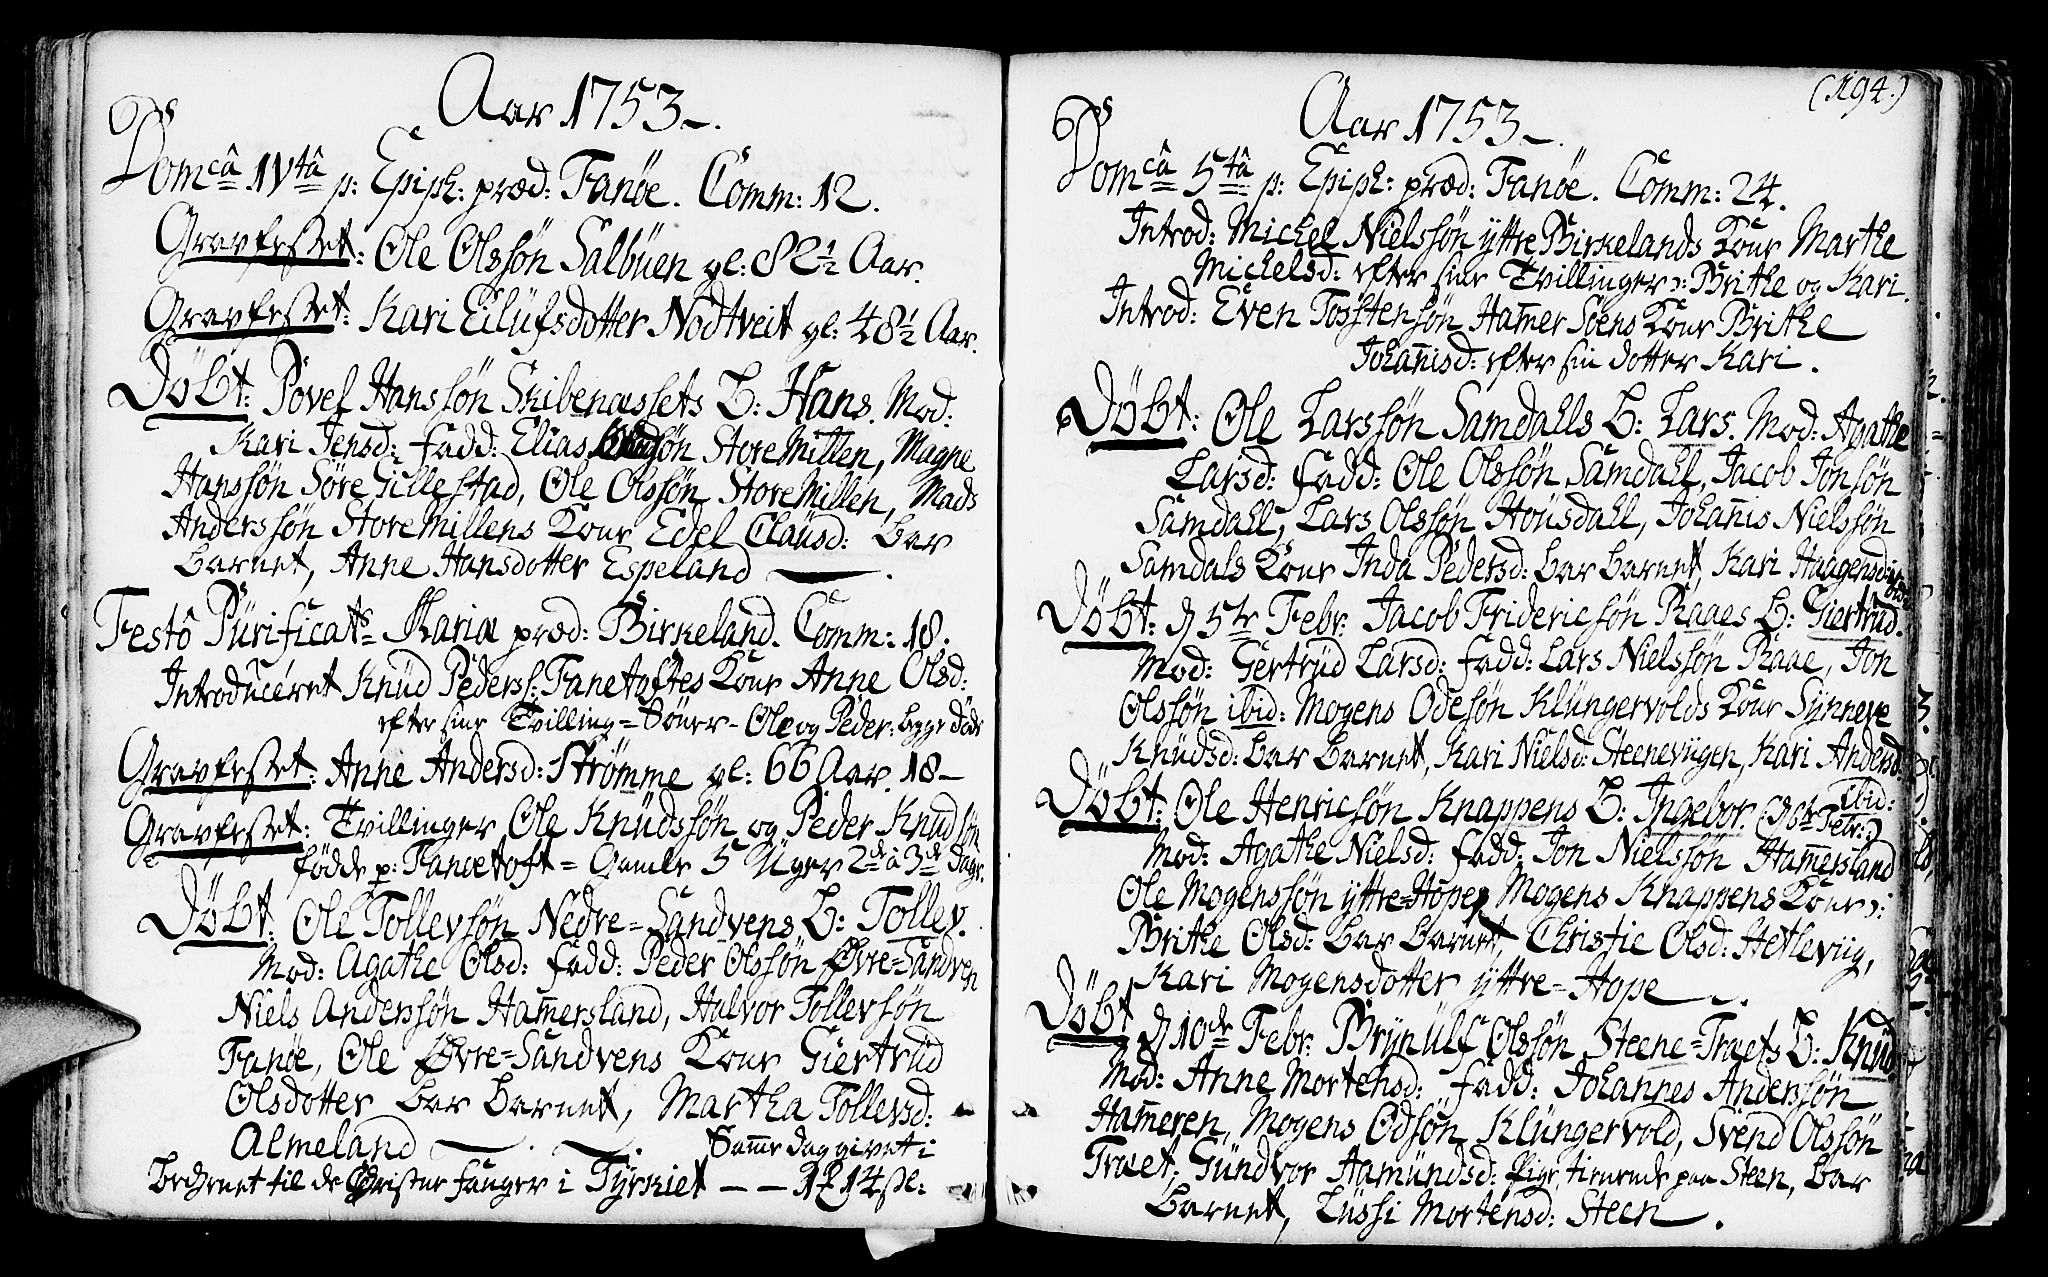 Aar 1753.
Domcâ IVtâ p: Epiph: præd: Fanöe. Comm: 12.
Gravfestet: Ole Olssön Salbüen gl: 82½ Aar.
Gravfestet: Kari Eilüfsdotter Nodtveit gl: 48½ Aar.
Döbt: Povel Hanssön Skibenæssets B: Hans. Mod:
Kari Jensd: fadd: Elias sön StoreMillen, Magne
Hanssön Söre Gillestad, Ole Olssön StoreMillen, Mads
Anderssön StoreMillens Kone Edel Claüsd: bar
barnet, Anne Hansdotter Espeland
Festô Pürificats Mariæ præd: Birkeland. Comm: 18.
Introduceret Knüd Peders: Fanetoftes Kone Anne Olsd:
efter sine Tvilling= Sönner - Ole og Peder: begge döde
Gravfestet: Anne Andersd: Strömme gl: 66 Aar. 18-
Gravfestet: Tvillinger Ole Knüdssön og Peder Knüdsön
födde p: Fanetoft= Gamle 5 Uger 2de à 3de Dage.
Döbt: Ole Tollevsön Nedre=Sandvens B: Tollev.
Mod: Agathe Olsd: fadd: Peder Olssön Øvre=Sandven
Niels Anderssön Ham̄ersland, Halvor Tollevsön
Fanöe, Ole Øvre=Sandvens Kone Giertrüd
Olsdotter bar barnet, Martha Tollevsd:
Almeland
Sam̄e dag givet i
beckenet til de Christne fanger i Tÿrkiet - - 1 14 sl:
(194.)
Aar 1753.
Domcâ 5tâ p: Epiph: præd: Fanöe. Comm: 24.
Introd: Michel Nielssön ÿttre Birkelands Kone Marthe
Michelsd: efter sine Tvillinger: Brithe og Kari.
Introd: Even Tosstensön Ham̄erSöens Kone Brithe
Johan̄isd: efter sin dotter Kari.
Döbt: Ole Larssön Samdahls B: Lars. Mod: Agathe
Larsd: fadd: Ole Olssön Samdahl, Jacob Jonsön
Samdahl, Lars Olssön Housdahl, Johan̄is Nielssön
Samdals Kone Inda Pedersd: bar barnet, Kari Haagensd:
Döbt: d 5te Febr: Jacob Fridericsön Raaes B: Giertrüd.
Mod: Gertrüd Larsd: fadd: Lars Nielssön Raae, Jon
Olssön ibid: Mogens Odesön Klüngervolds Kone Sÿnneve
Knüdsd: bar barnet, Kari Nielsd: Steenevügen, Kari Andersd:
ibid:
Döbt: Ole Henricsön Knappens B: Ingebor. (d 6te Febr:)
Mod: Agathe Nielsd: fadd: Jon Nielssön Ham̄ersland
Ole Mogenssön ÿttre=Hope, Mogens Knappens Kone:
Brithe Olsd: bar barnet, Christie Olsd: Hetleviig,
Kari Mogensdotter ÿttre=Hope
Döbt d 10de Febr: Brÿnülf Olssön Steene=Træets B: Knüd.
Mod: Anne Mortensd: fadd: Johannes Anderssön
Ham̄eren, Mogens Odsön Klüngervold, Svend Olssön
Træet, Gündvor Aamündsd: Pige, tienende paa Steen, bar
barnet, Lüssi Mortensd: Steen.